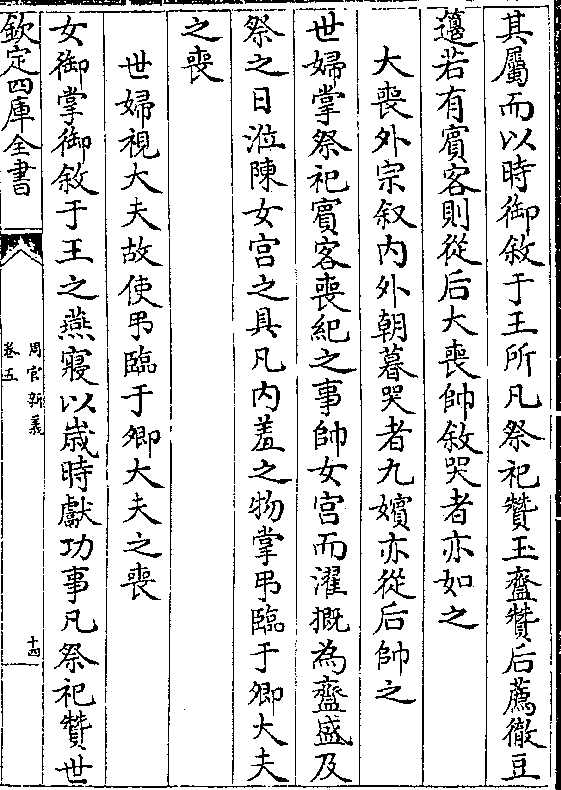 其屬而以時御敘于王所凡祭祀贊玉齍贊后薦徹豆
籩若有賔客則從后大喪帥敘哭者亦如之
大喪外宗叙内外朝暮哭者九嬪亦從后帥之
世婦掌祭祀賔客喪紀之事帥女宫而濯摡為齍盛及
祭之日涖陳女宫之具凡内羞之物掌弔臨于卿大夫
之喪
世婦視大夫故使弔臨于卿大夫之喪
女御掌御敘于王之燕寢以嵗時獻功事凡祭祀贊世
欽定四庫全書
周官新義
卷五
十四